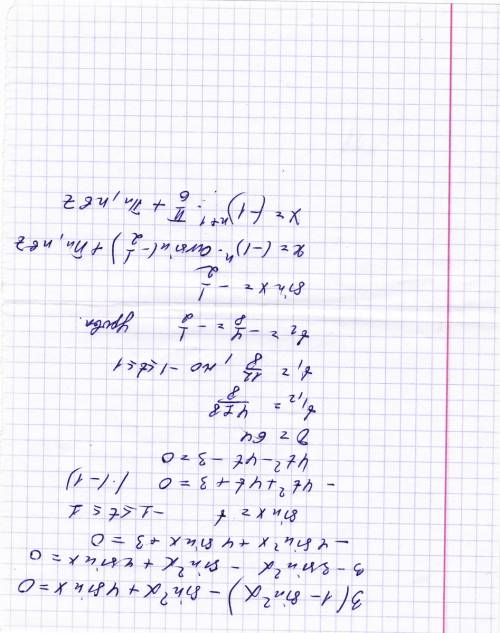 3(1-sin²x)-sin²x+4sin x=0
3-3sin²x-sin²x+4sinx=0
-4sin²x+4sinx+3=0
sin x=t   -1≤t≤1
-4t²+4t+3=0   |·(-1)
4t²-4t-3=0
D=64
t₁,₂ = (4±8)/8
t₁ = 12/8, но -1≤t≤1
t₂ = -4/8 = -1/2
sin x = -1/2
x = (-1)ⁿ · arcsin(-1/2) + πn, n∈z
x = (-1)ⁿ⁺¹ · π/6 + πn, n∈z